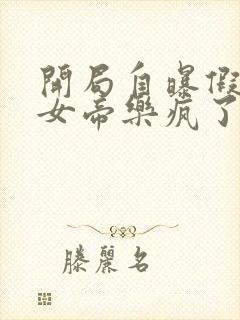 開局自曝假
女帝樂瘋了
滕麗名